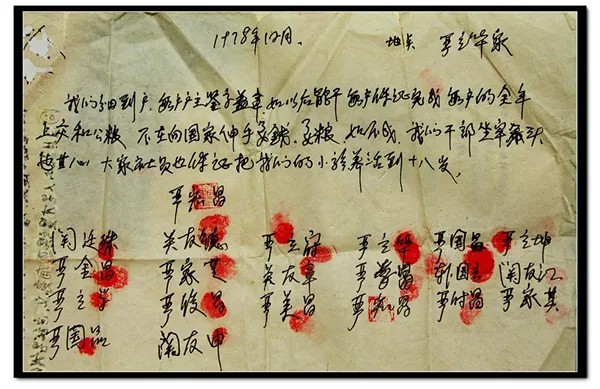 1978年12月。 地点 严立华家
我们分田到户,每户户主签字盖章,如以后能干,每户保证完成每户的全年
上交和公粮,不在向国家伸手要钱要粮,如不成,我们干部坐牢杀头
也甘心,大家社员也保证把我们的小孩养活到十八岁。
严宏昌
关廷珠 关友德 严立符 严立华 严国昌 严立坤
严金昌 严家芝 关友章 严学昌 韩国云 关友江
严立学 严俊昌 严美昌 严宏昌 严付昌 严家其
严国品 关友申